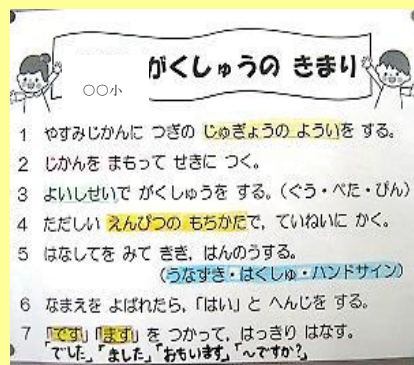 がくしゅうの きまり
○○小
1 やすみじかんに つぎの じゅぎょうの よういを する。
2 じかんを まもって せきに つく。
3 よいしせいで がくしゅうを する。(ぐう・ぺた・ぴん)
4 ただしい えんぴつの もちかたで, ていねいに かく。
5 はなしてを みて きき, はんのうする。
(うなずき・はくしゅ・ハンドサイン)
6 なまえを よばれたら,「はい」と へんじを する。
7 「です」「ます」を つかって, はっきり はなす。
「でした」「ました」「おもいます」「~ですか?」